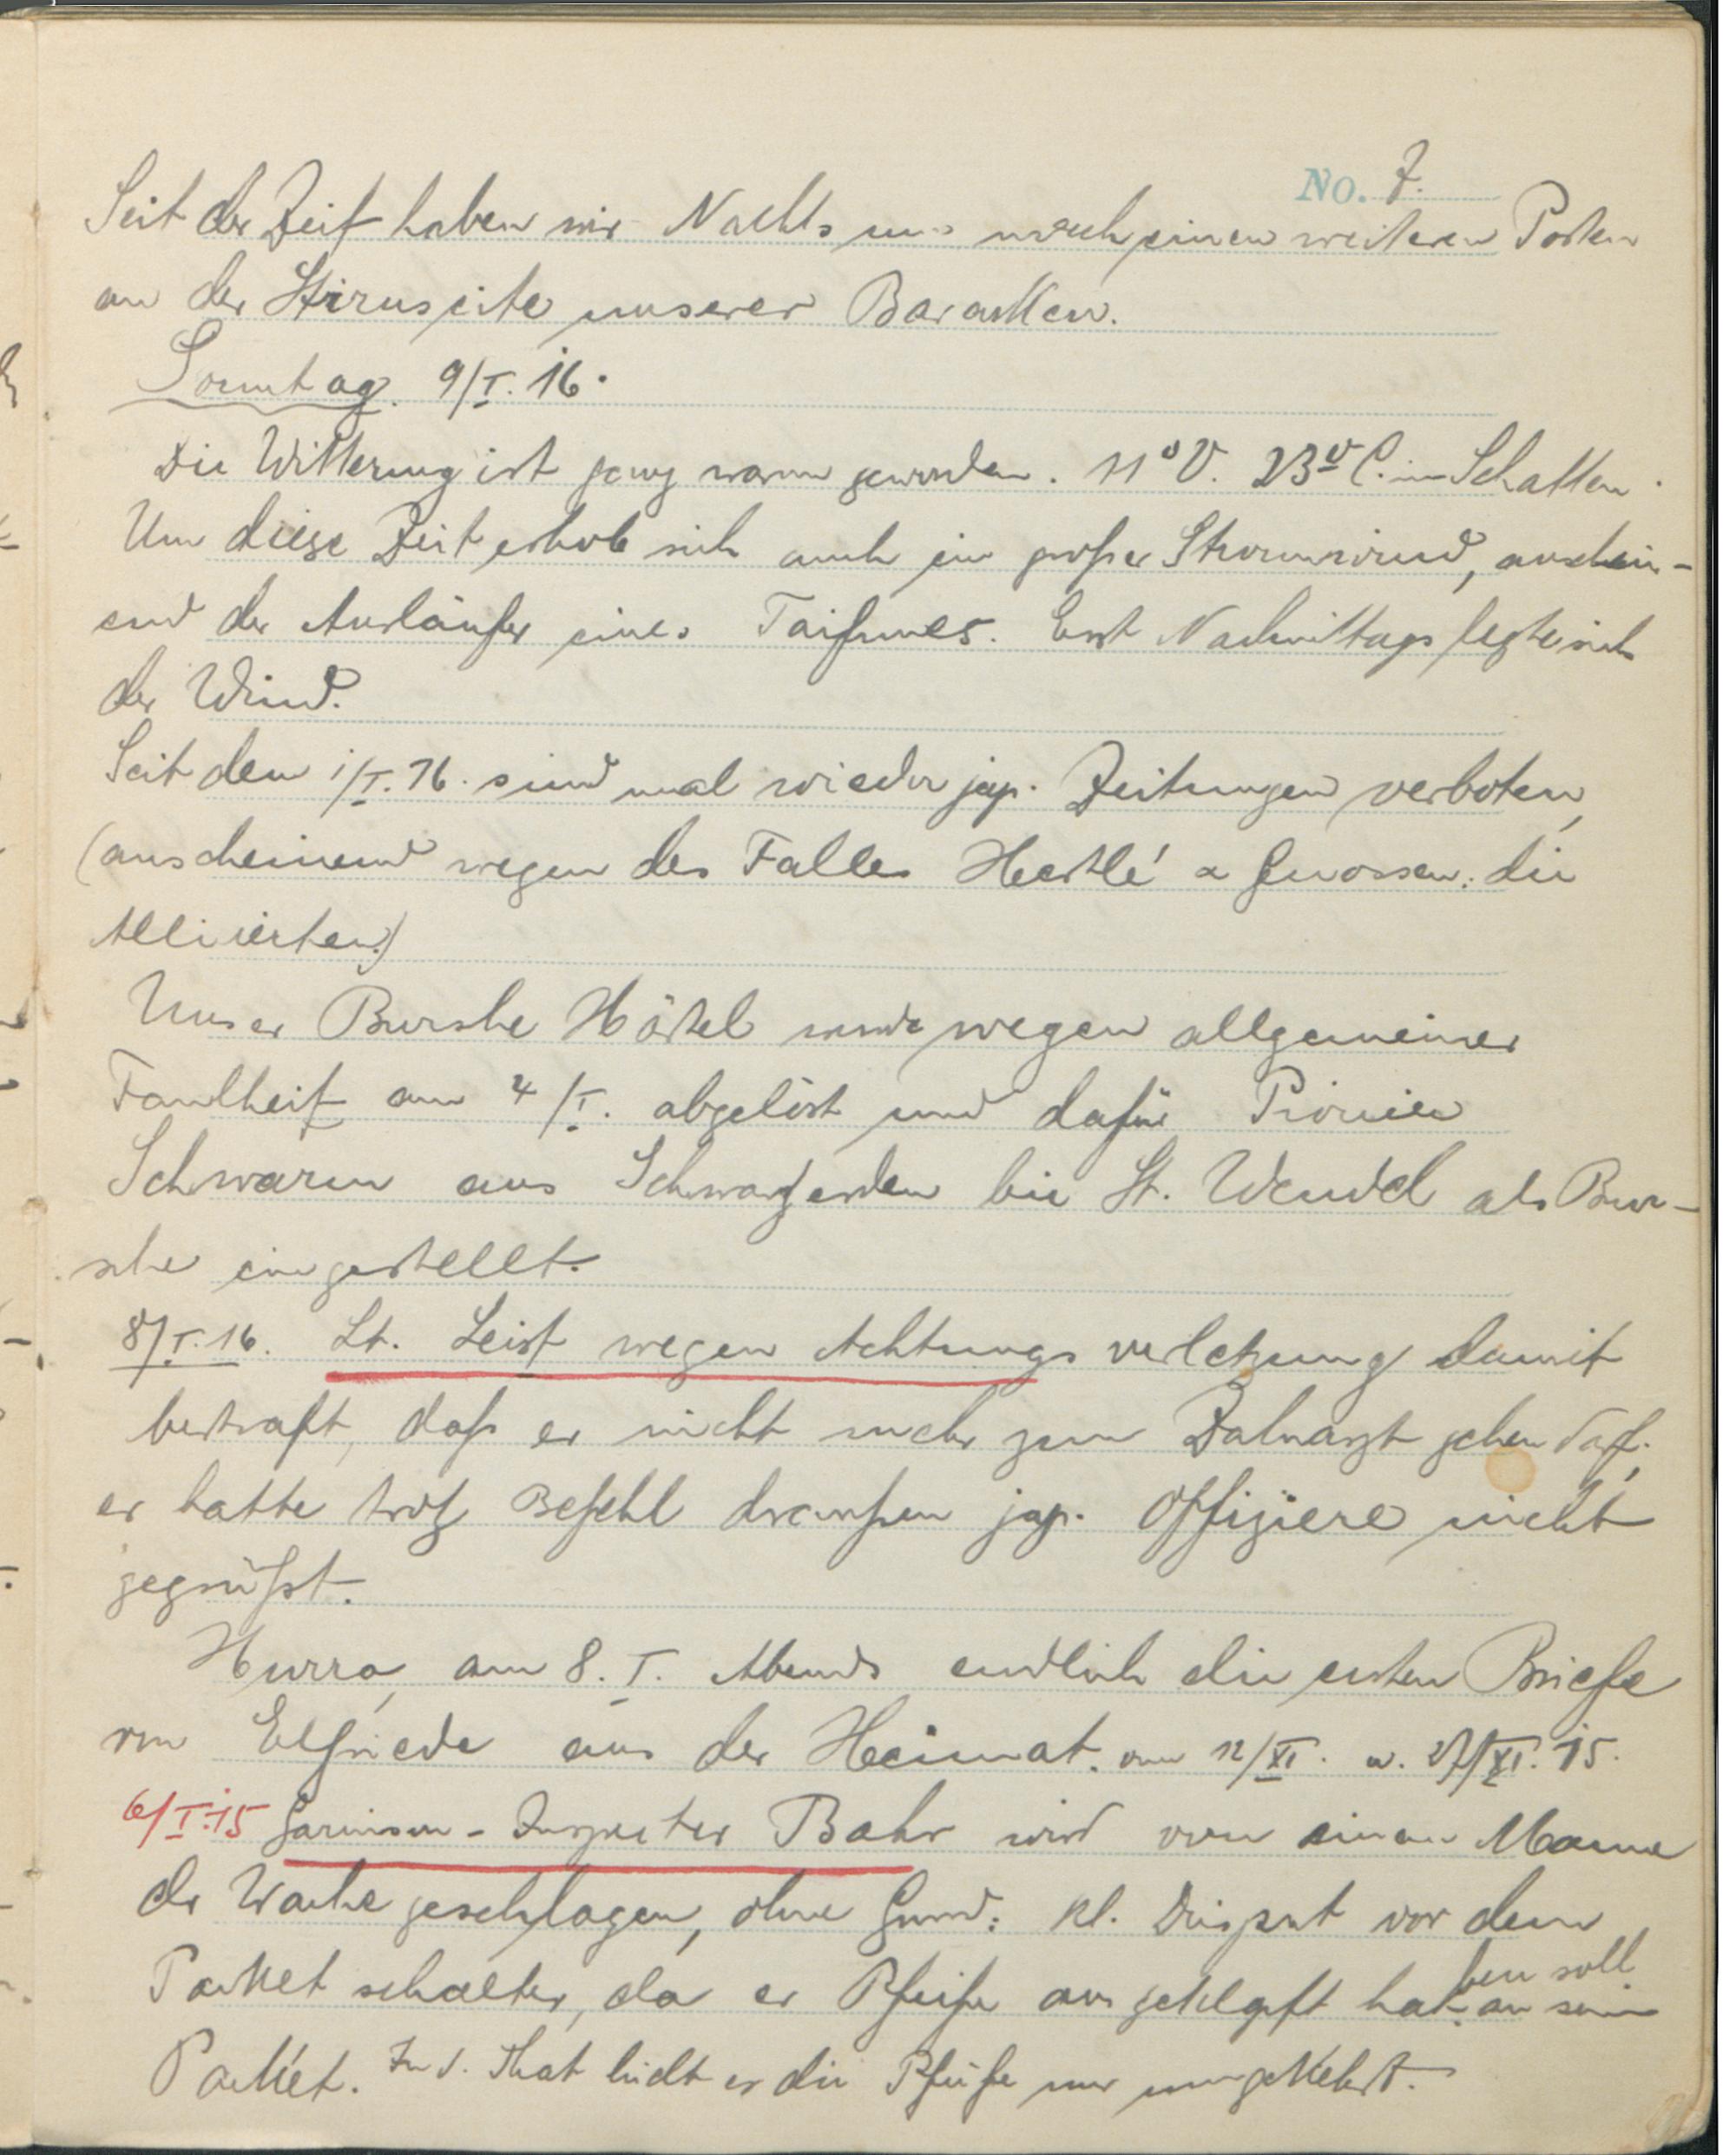 No. 7.
Seit der Zeit haben wir Nachts uns noch einen weiteren Posten
an der Stirnseite unserer Baracken.
Sonntag. 9/I. 16.
Die Witterung ist ganz warm geworden. 11° V. 23° C. im Schatten.
Um diese Zeit erhob sich auch ein großer Sturmwind, anschein-
end der Ausläufer eines Taifunes. Erst Nachmittags legte sich
der Wind.
Seit dem 1/I. 16. sind mal wieder jap. Zeitungen verboten,
(anscheinend wegen des Falles & Genossen: die
Alliierten.)
Unser Bursche Hörtel wurde wegen allgemeiner
Faulheit am 4/I. abgelöst und dafür Pionier
Schwarm aus Schwarzerden bei St. Wendel als Bur-
sche eingestellt.
8/I. 16. Lt. Leist wegen Achtungsverletzung damit
bestraft, daß er nicht mehr zum Zahnarzt gehen darf;
er hatte trotz Befehl draußen jap. Offiziere nicht
gegrüßt.
Hurra, am 8. I. Abends endlich die ersten Briefe
von Elfriede aus der Heimat. vom 12/XI. u. 27/XI. 15.
6/I. 15 Garnison-Inspector Bahr wird von einem Manne
der Wache geschlagen, ohne Grund: kl. Disput vor dem
Packet schalter, da er Pfeife ausgeklopft ha-ben soll an sein
Packet. In d. That hielt er die Pfeife nur umgekehrt.